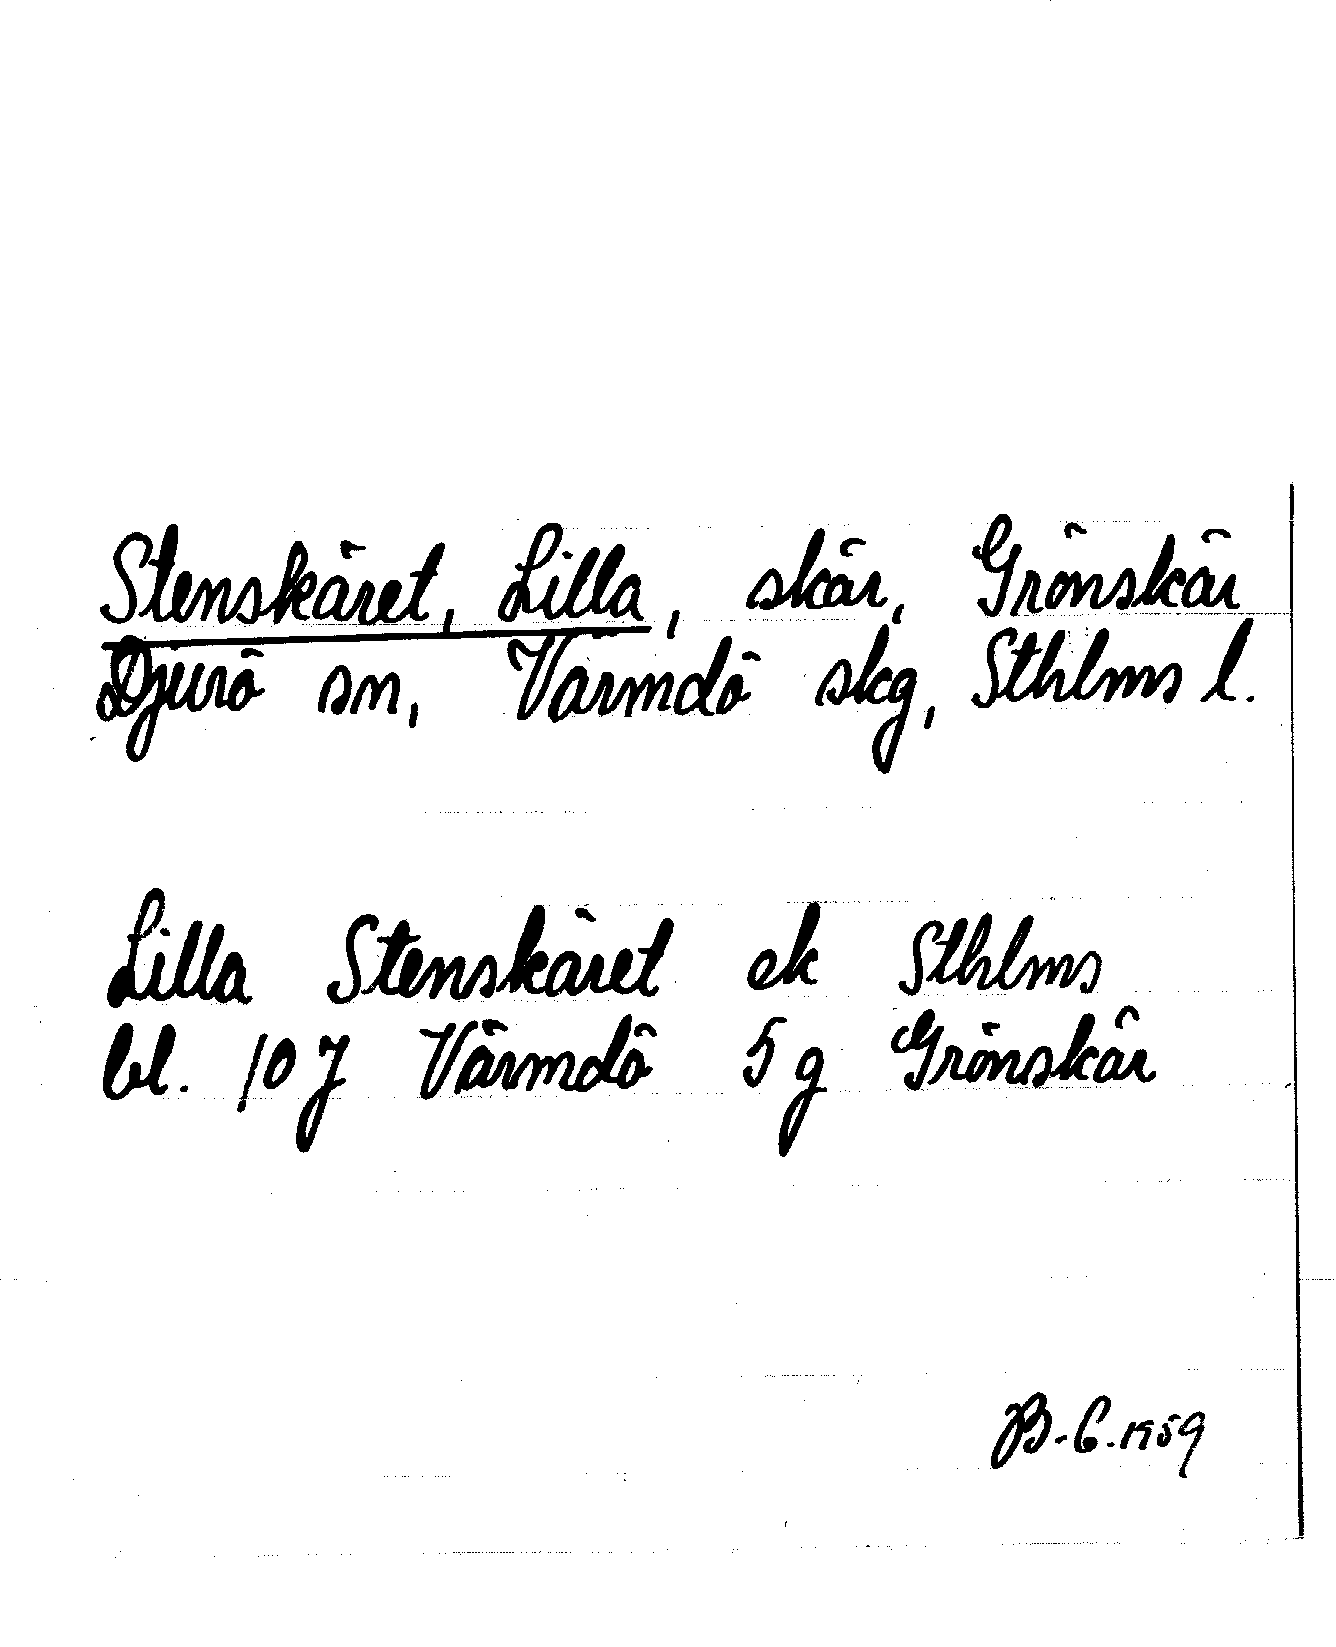 Stenskäret, Lilla, skär, Grönskär
Djurö sn, Värmdö skg, Sthlms l.
Lilla Stenskäret ek Sthlms
bl. 107 Värmdö 5 g Grönskär
B-C. 1959